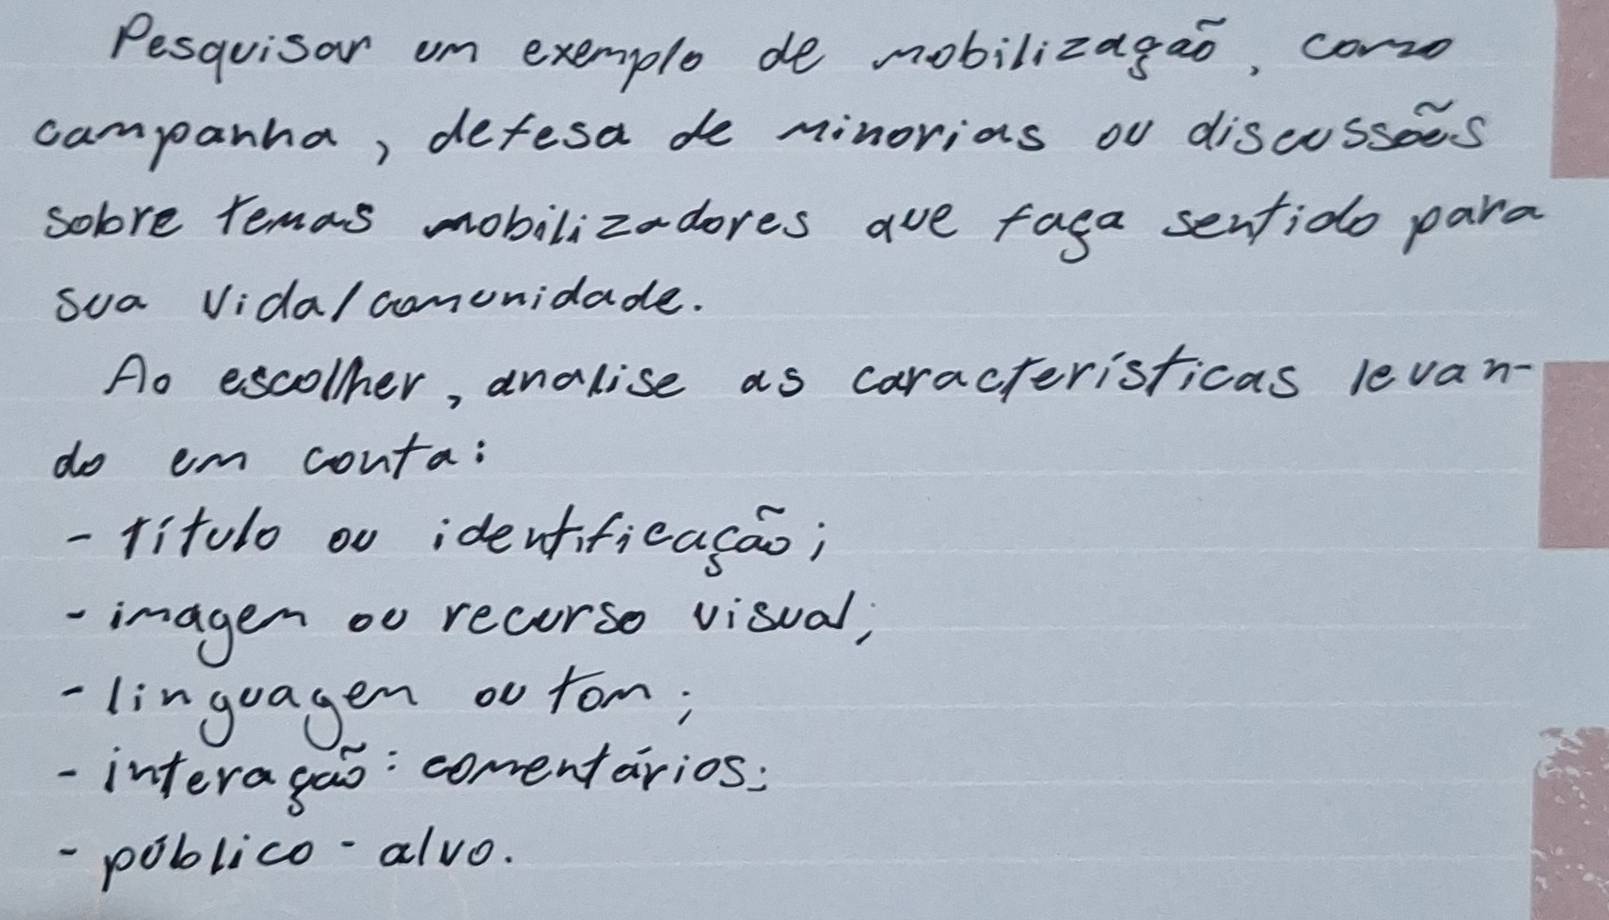 Pesquisar um exemplo de mobilização, como
campanha, defesa de minorias ou discussões
sobre temas mobilizadores que faça sentido para
sua vida/comunidade.
Ao escolher, analise as características levan-
do em conta:
- título ou identificação;
- imagem ou recurso visual;
- linguagem ou tom;
- interação: comentários;
- público-alvo.